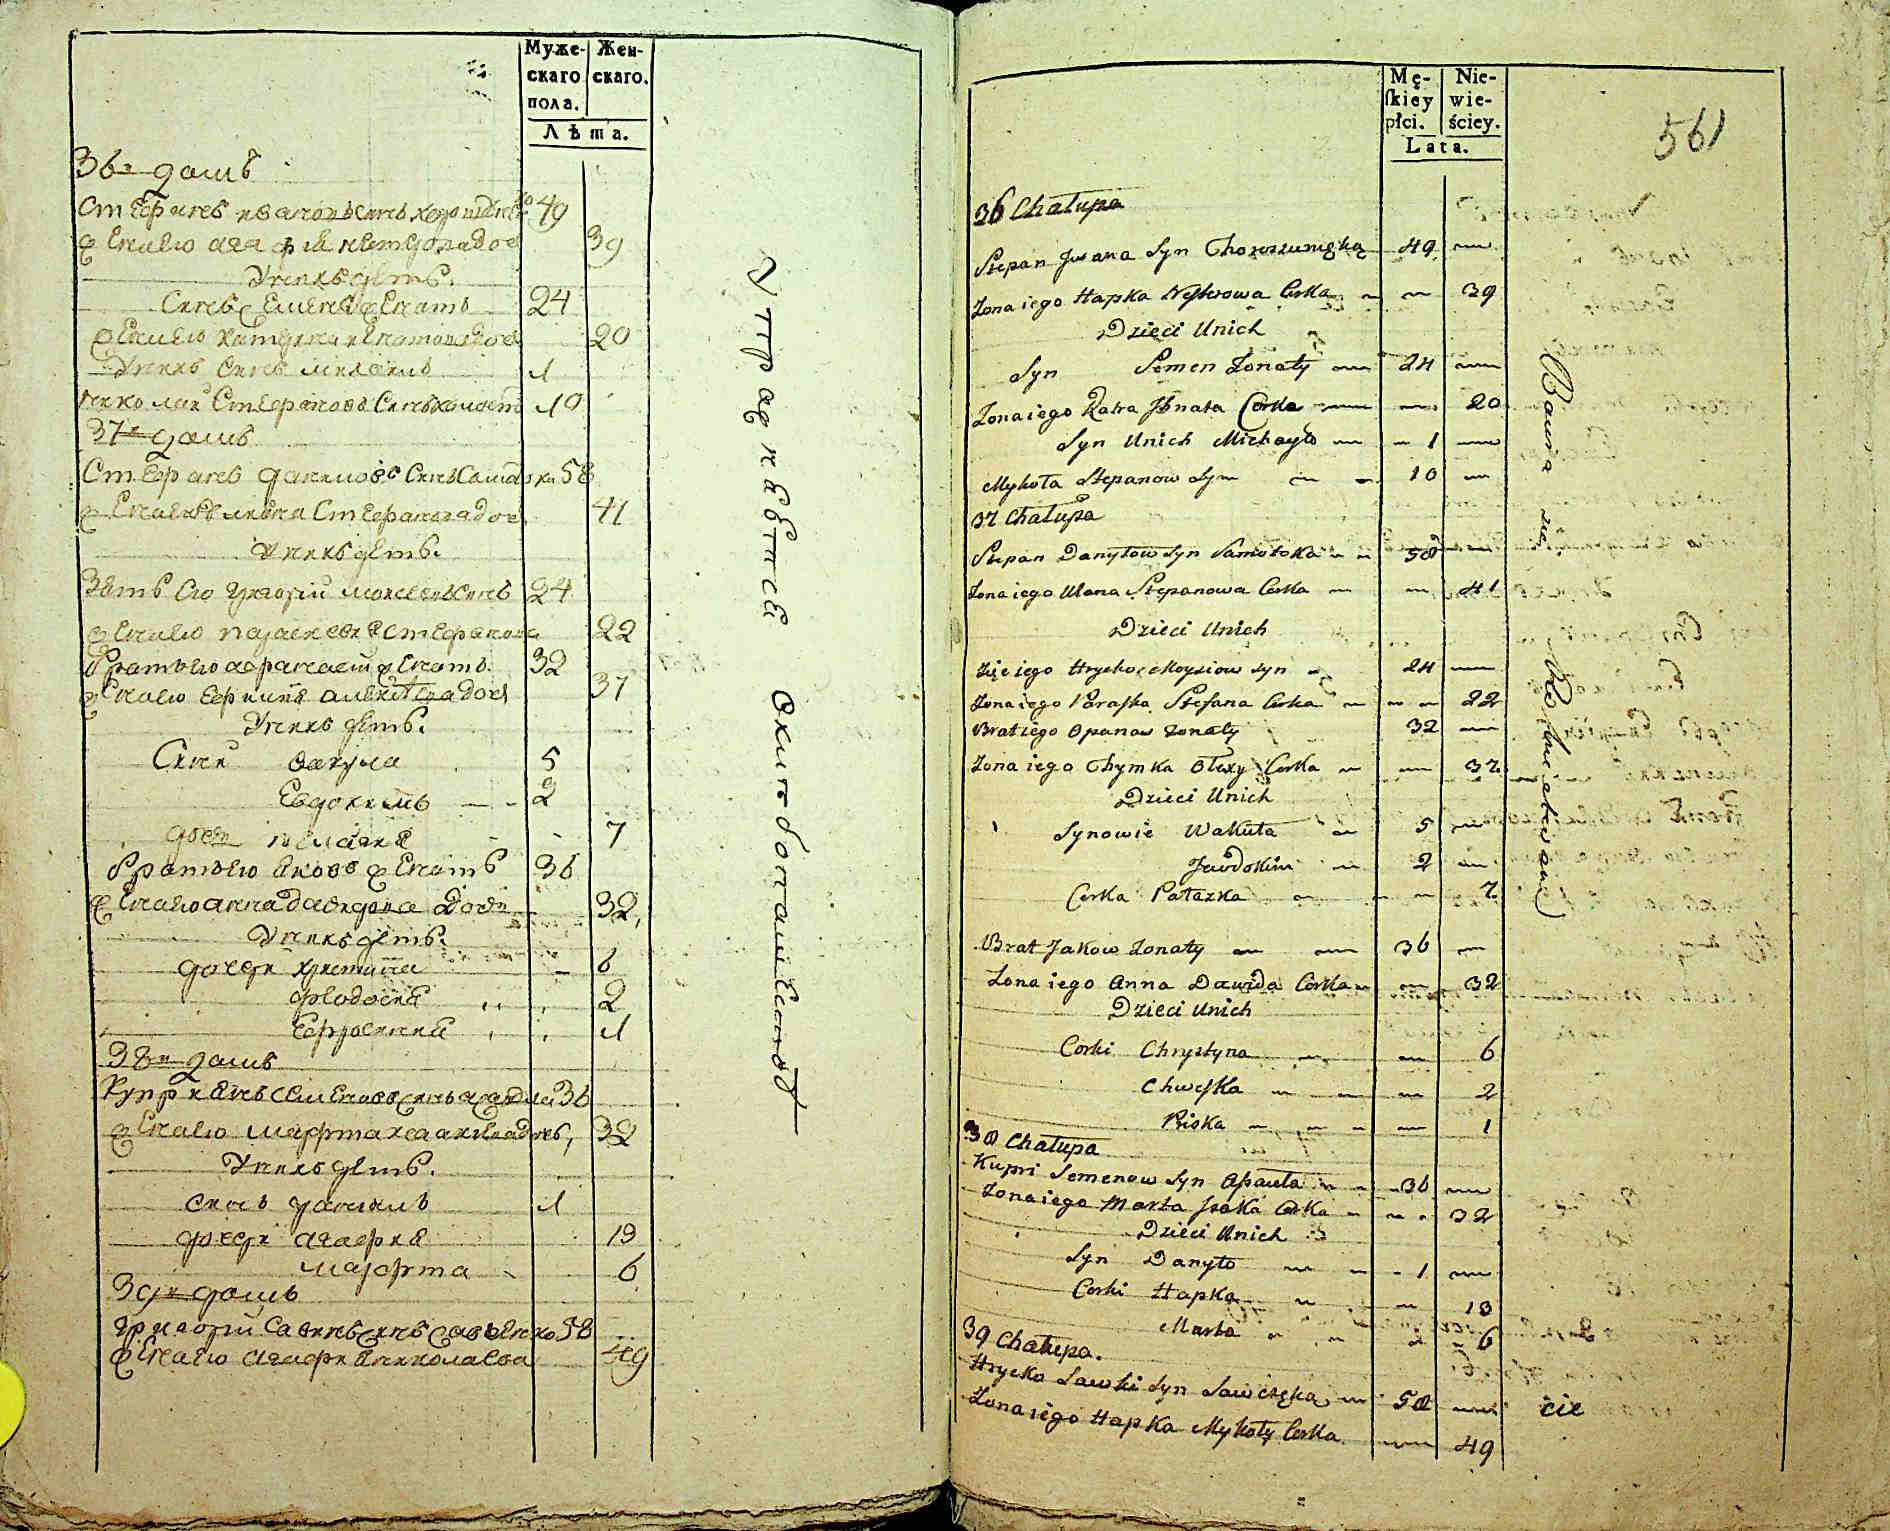 Муже-
скаго
пола.
Жен-
скаго.
Лѣта.
36й домъ
Степанъ Ивановъ сынъ 49
жена его Агафія 39
У нихъ дѣти.
Сынъ Семенъ женатъ 24
жена его Катерина 20
У нихъ сынъ Михаилъ 1
Николай Степановъ сынъ холостъ 10
37й домъ
Степанъ Даниловъ сынъ 58
Степанова доч 41
У нихъ дѣти.
Зять его Григорій Моисеевъ сынъ 24
жена его Параскевія Степанова 22
Братъ его Афанасій женатъ 32
жена его Ефимія 37
У нихъ дѣти.
Сыны Вакула 5
Евдокимъ 2
дочь Пелагея 7
Братъ его Яковъ женатъ 36
жена его Анна Давидова дочь 32
У нихъ дѣти.
дочери Христина 6
Феодосия 2
Ефросиния 1
38й домъ
Куприянъ Семеновъ сынъ 36
жена его Марфта 32
У нихъ дѣти.
сынъ Данилъ 1
дочери Агафия 13
Марфта 6
39й домъ
Григорій Савинъ сынъ Савченко 58
жена его Агафия Николаева 49
Уніяцкія
561
Mę-
skiey
płci.
Nie-
wie-
ściey.
Lata.
36 Chałupa
Stepan Jwana Syn 49
Żona iego Hapka Nesterowa Corka 39
Dzieci Unich
Syn Semen Żonaty 24
Żona iego Katra Jhnata Corka 20
Syn Unich Michayło 1
Mykoła Stepanow Syn 10
37 Chałupa
Stepan Danyłow Syn Samotoka 58
Żona iego Ulana Stepanowa Corka 41
Dzieci Unich
Zię iego Hrycko Moysiow Syn 24
Żona iego Paraska Stefana Corka 22
Brat iego Opanas Żonaty 32
Żona iego Chymka Ołexy Corka 37
Dzieci Unich
Synowie Wakuła 5
Jewdokim 2
Corka Pałazka 7
Brat Jakow Żonaty 36
Żona iego Anna Dawida Corka 32
Dzieci Unich
Corki Chrystyna 6
Chweska 2
Priska 1
38 Chałupa
Kupri Semenow Syn 36
Żona iego Marta Jsaka Corka 32
Dzieci Unich
Syn Danyło 1
Corki Hapka 13
Marta 6
39 Chałupa.
Hrycko Sawki Syn Sawczęka 58
Żona iego Hapka Mykoły Corka 49